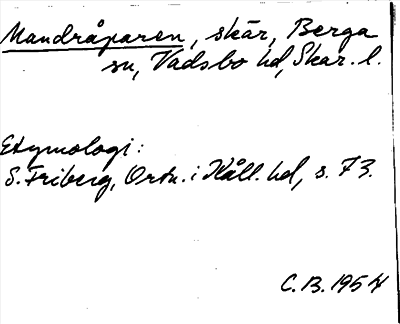 Mandråparen, skär, Berga
sn, Vadsbo hd, Skar. l.
Etymologi:
S. Friberg, Ortn. i Kåll. hd, s. 73.
C.B. 1954